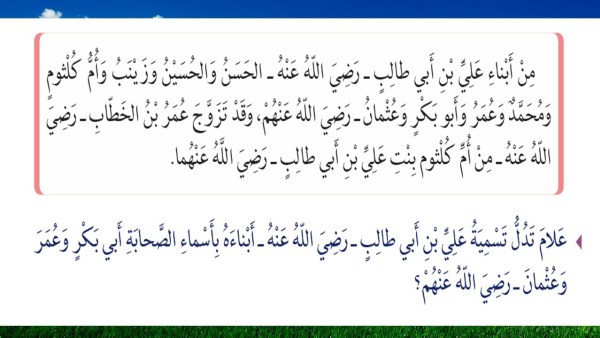 مِنْ أَبْناءِ عَلِيِّ بْنِ أَبي طالِبٍ ـ رَضِيَ اللّهُ عَنْهُ ـ الحَسَنُ وَالحُسَيْنُ وَزَيْنَبُ وَأُمُّ كُلْثومٍ
وَمُحَمَّدٌ وَعُمَرُ وَأَبو بَكْرٍ وَعُثْمانُ ـ رَضِيَ اللّهُ عَنْهُمْ، وَقَدْ تَزَوَّجَ عُمَرُ بْنُ الخَطّابِ ـ رَضِيَ
اللّهُ عَنْهُ ـ مِنْ أُمِّ كُلْثوم بِنْتِ عَلِيِّ بْنِ أَبي طالِبٍ ـ رَضِيَ اللَّهُ عَنْهُما.
عَلامَ تَدُلُّ تَسْمِيَةُ عَلِيِّ بْنِ أَبي طالِبٍ ـ رَضِيَ اللّهُ عَنْهُ ـ أَبْناءَهُ بِأَسْماءِ الصَّحابَةِ أَبي بَكْرٍ وَعُمَرَ
وَعُثْمانَ ـ رَضِيَ اللّهُ عَنْهُمْ؟